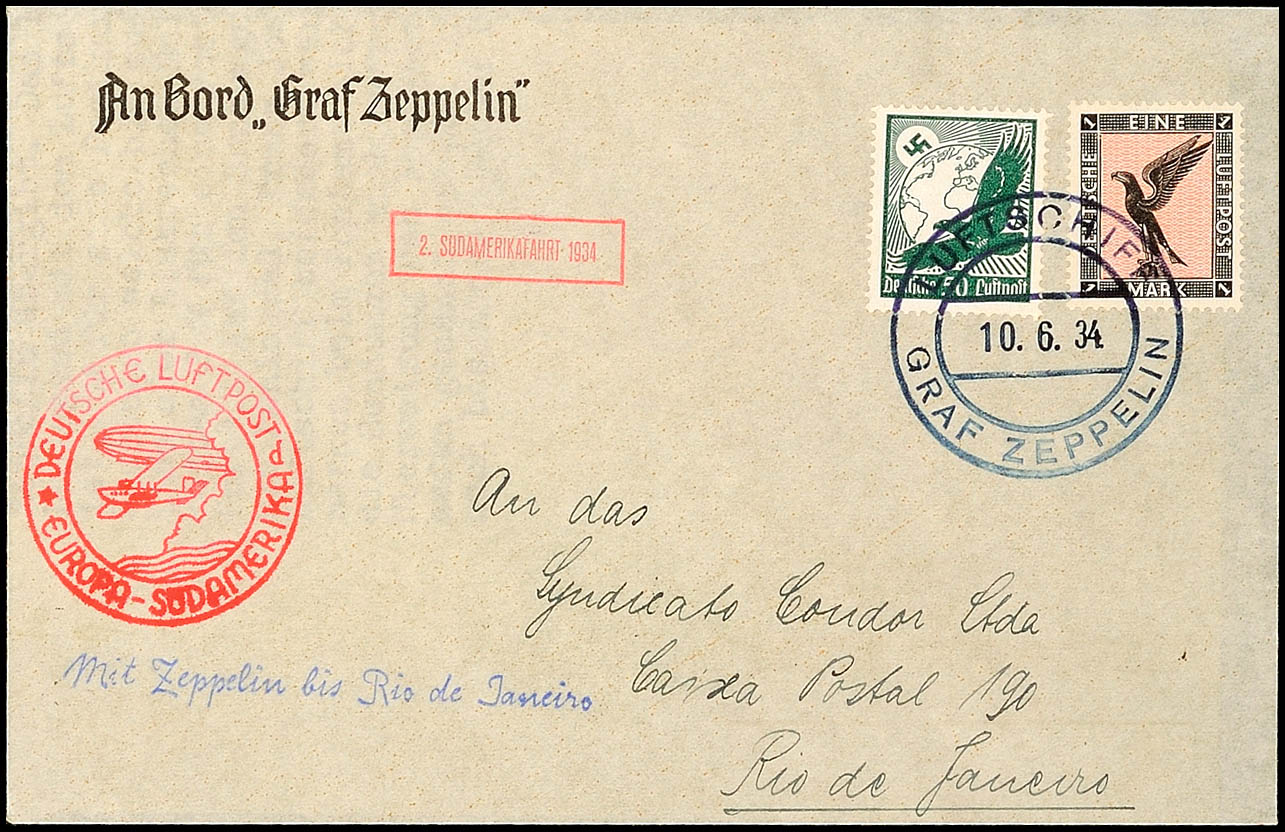 An Bord „Graf Zeppelin"
EINE
DEUTSCHE LUFTPOST
MARK
1 1
1 1
Deutsche 50 Luftpost
2. SÜDAMERIKAFAHRT 1934
LUFTSCHIFF
10. 6. 34
GRAF ZEPPELIN
DEUTSCHE LUFTPOST
★ EUROPA-SÜDAMERIKA
An das
Syndicato Condor Ltda
Caixa Postal 190
Rio de Janeiro
Mit Zeppelin bis Rio de Janeiro